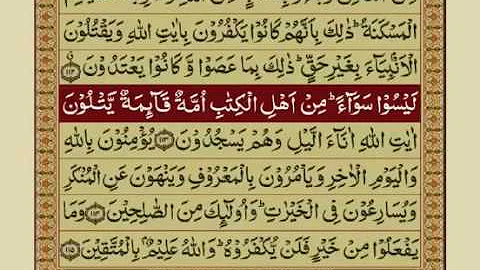 الْمَسْكَنَةُ ؕ ذٰلِكَ بِاَنَّهُمْ كَانُوْا يَكْفُرُوْنَ بِاٰيٰتِ اللّٰهِ وَيَقْتُلُوْنَ
الْاَنْۢبِيَآءَ بِغَيْرِ حَقٍّ ؕ ذٰلِكَ بِمَا عَصَوْا وَّ كَانُوْا يَعْتَدُوْنَ ۝۱۱۲
لَيْسُوْا سَوَآءً ؕ مِنْ اَهْلِ الْكِتٰبِ اُمَّةٌ قَآئِمَةٌ يَّتْلُوْنَ
اٰيٰتِ اللّٰهِ اٰنَآءَ الَّيْلِ وَهُمْ يَسْجُدُوْنَ ۝۱۱۳ يُؤْمِنُوْنَ بِاللّٰهِ
وَالْيَوْمِ الْاٰخِرِ وَيَاْمُرُوْنَ بِالْمَعْرُوْفِ وَيَنْهَوْنَ عَنِ الْمُنْكَرِ
وَيُسَارِعُوْنَ فِى الْخَيْرٰتِ ؕ وَاُولٰٓئِكَ مِنَ الصّٰلِحِيْنَ ۝۱۱۴ وَمَا
يَفْعَلُوْا مِنْ خَيْرٍ فَلَنْ يُّكْفَرُوْهُ ؕ وَاللّٰهُ عَلِيْمٌۢ بِالْمُتَّقِيْنَ ۝۱۱۵